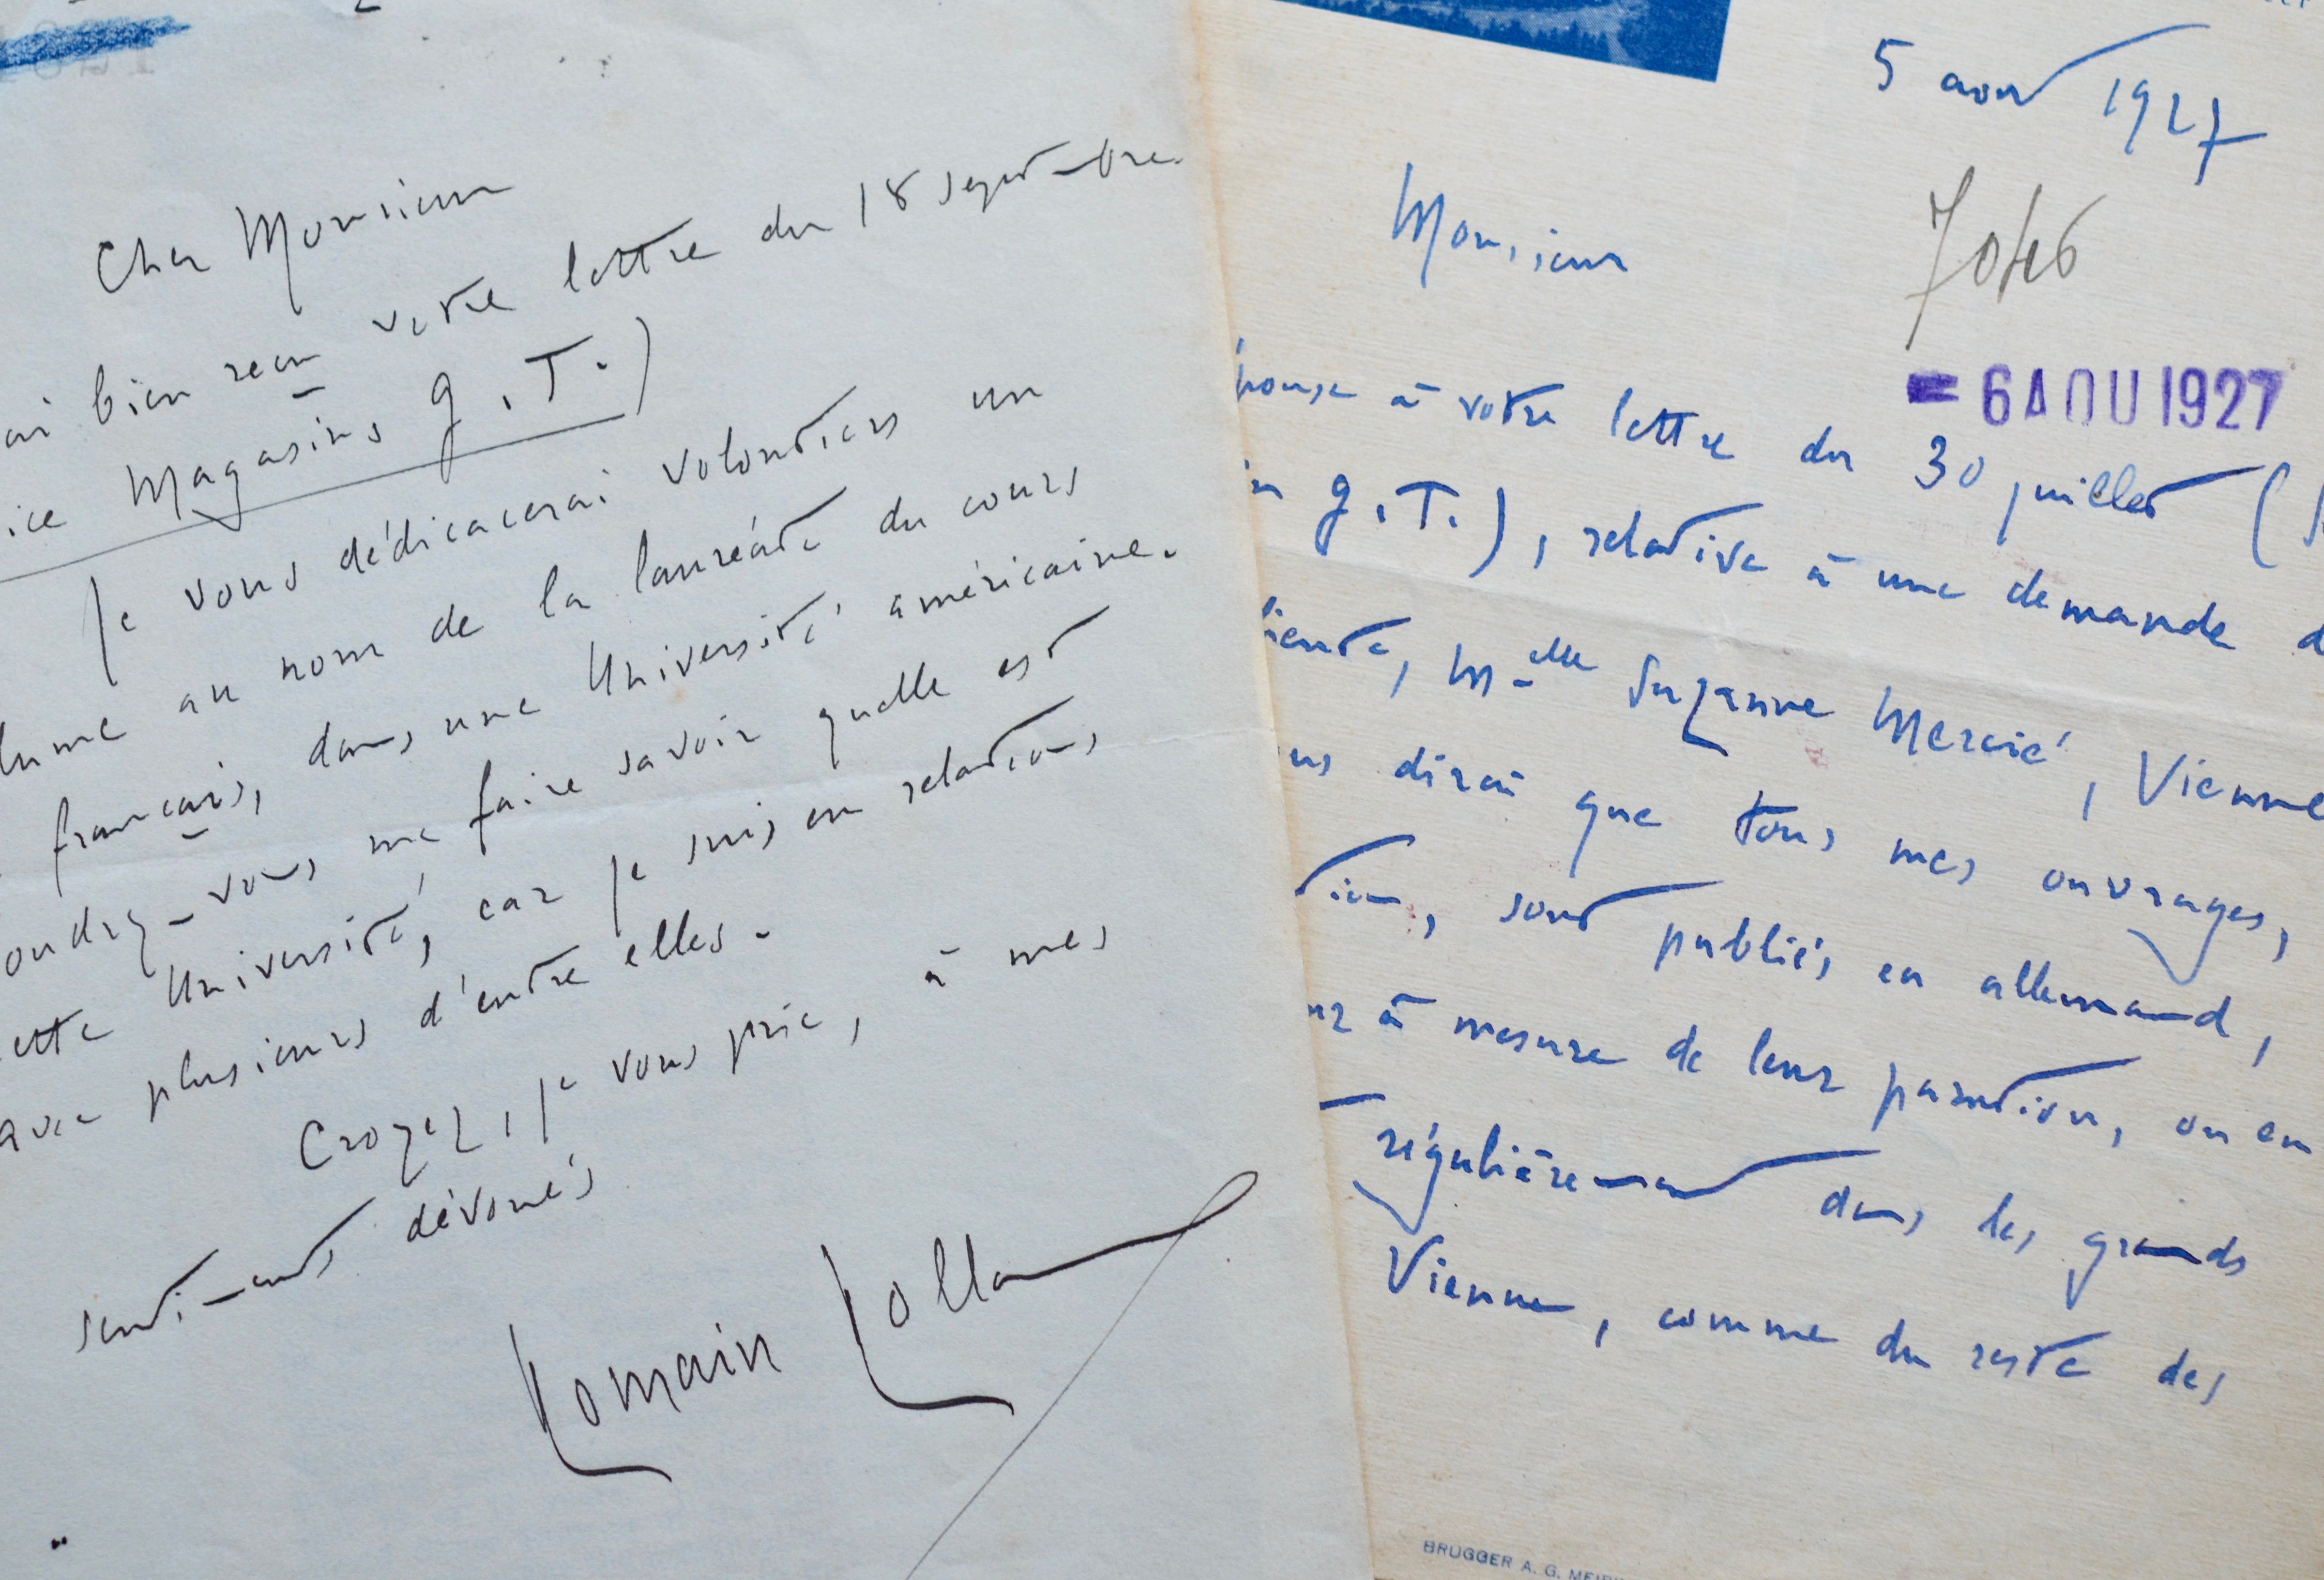 Cher Monsieur
ai bien reçu votre lettre du 18 septembre.
ice Magasins G.T.)
Je vous dédicacerai volontiers un
lume au nom de la lauréate du cours
français, dans une Université américaine.
oudrez-vous me faire savoir quelle est
ette Université, car je suis en relations
avec plusieurs d'entre elles.
Croyez, je vous prie, à mes
sentiments dévoués
Romain Rolland
5 août 1927
Monsieur
7046
6 AOU 1927
ponse à votre lettre du 30 juillet (
in G.T.), relative à une demande d
liente, Melle Suzanne Mercié, Vienne
us dirai que tous mes ouvrages,
tion, sont publiés en allemand,
ur à mesure de leur parution, on en
régulièrement dans les grands
Vienne, comme du reste des
BRÜGGER A. G. MEIRI